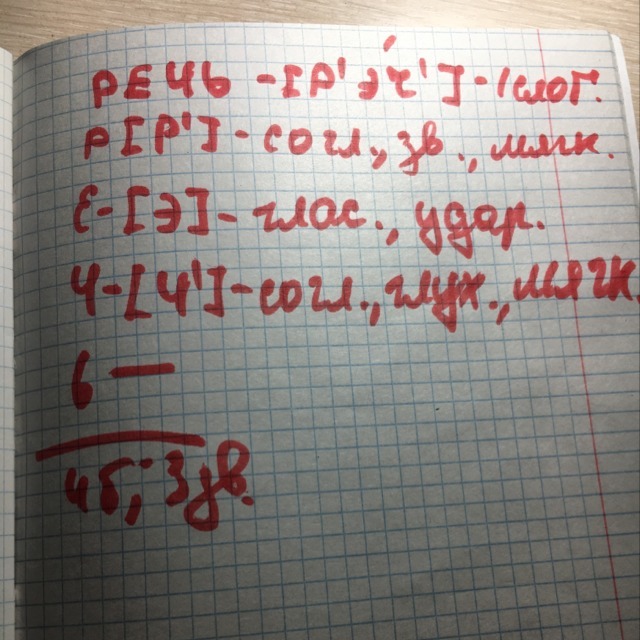 РЕЧЬ -[Р'Э́Ч']-1слог.
Р[Р']-согл., зв., мягк.
Е-[Э]-глас., удар.
Ч-[Ч']-согл., глух., мягк.
ь —
4б; 3зв.